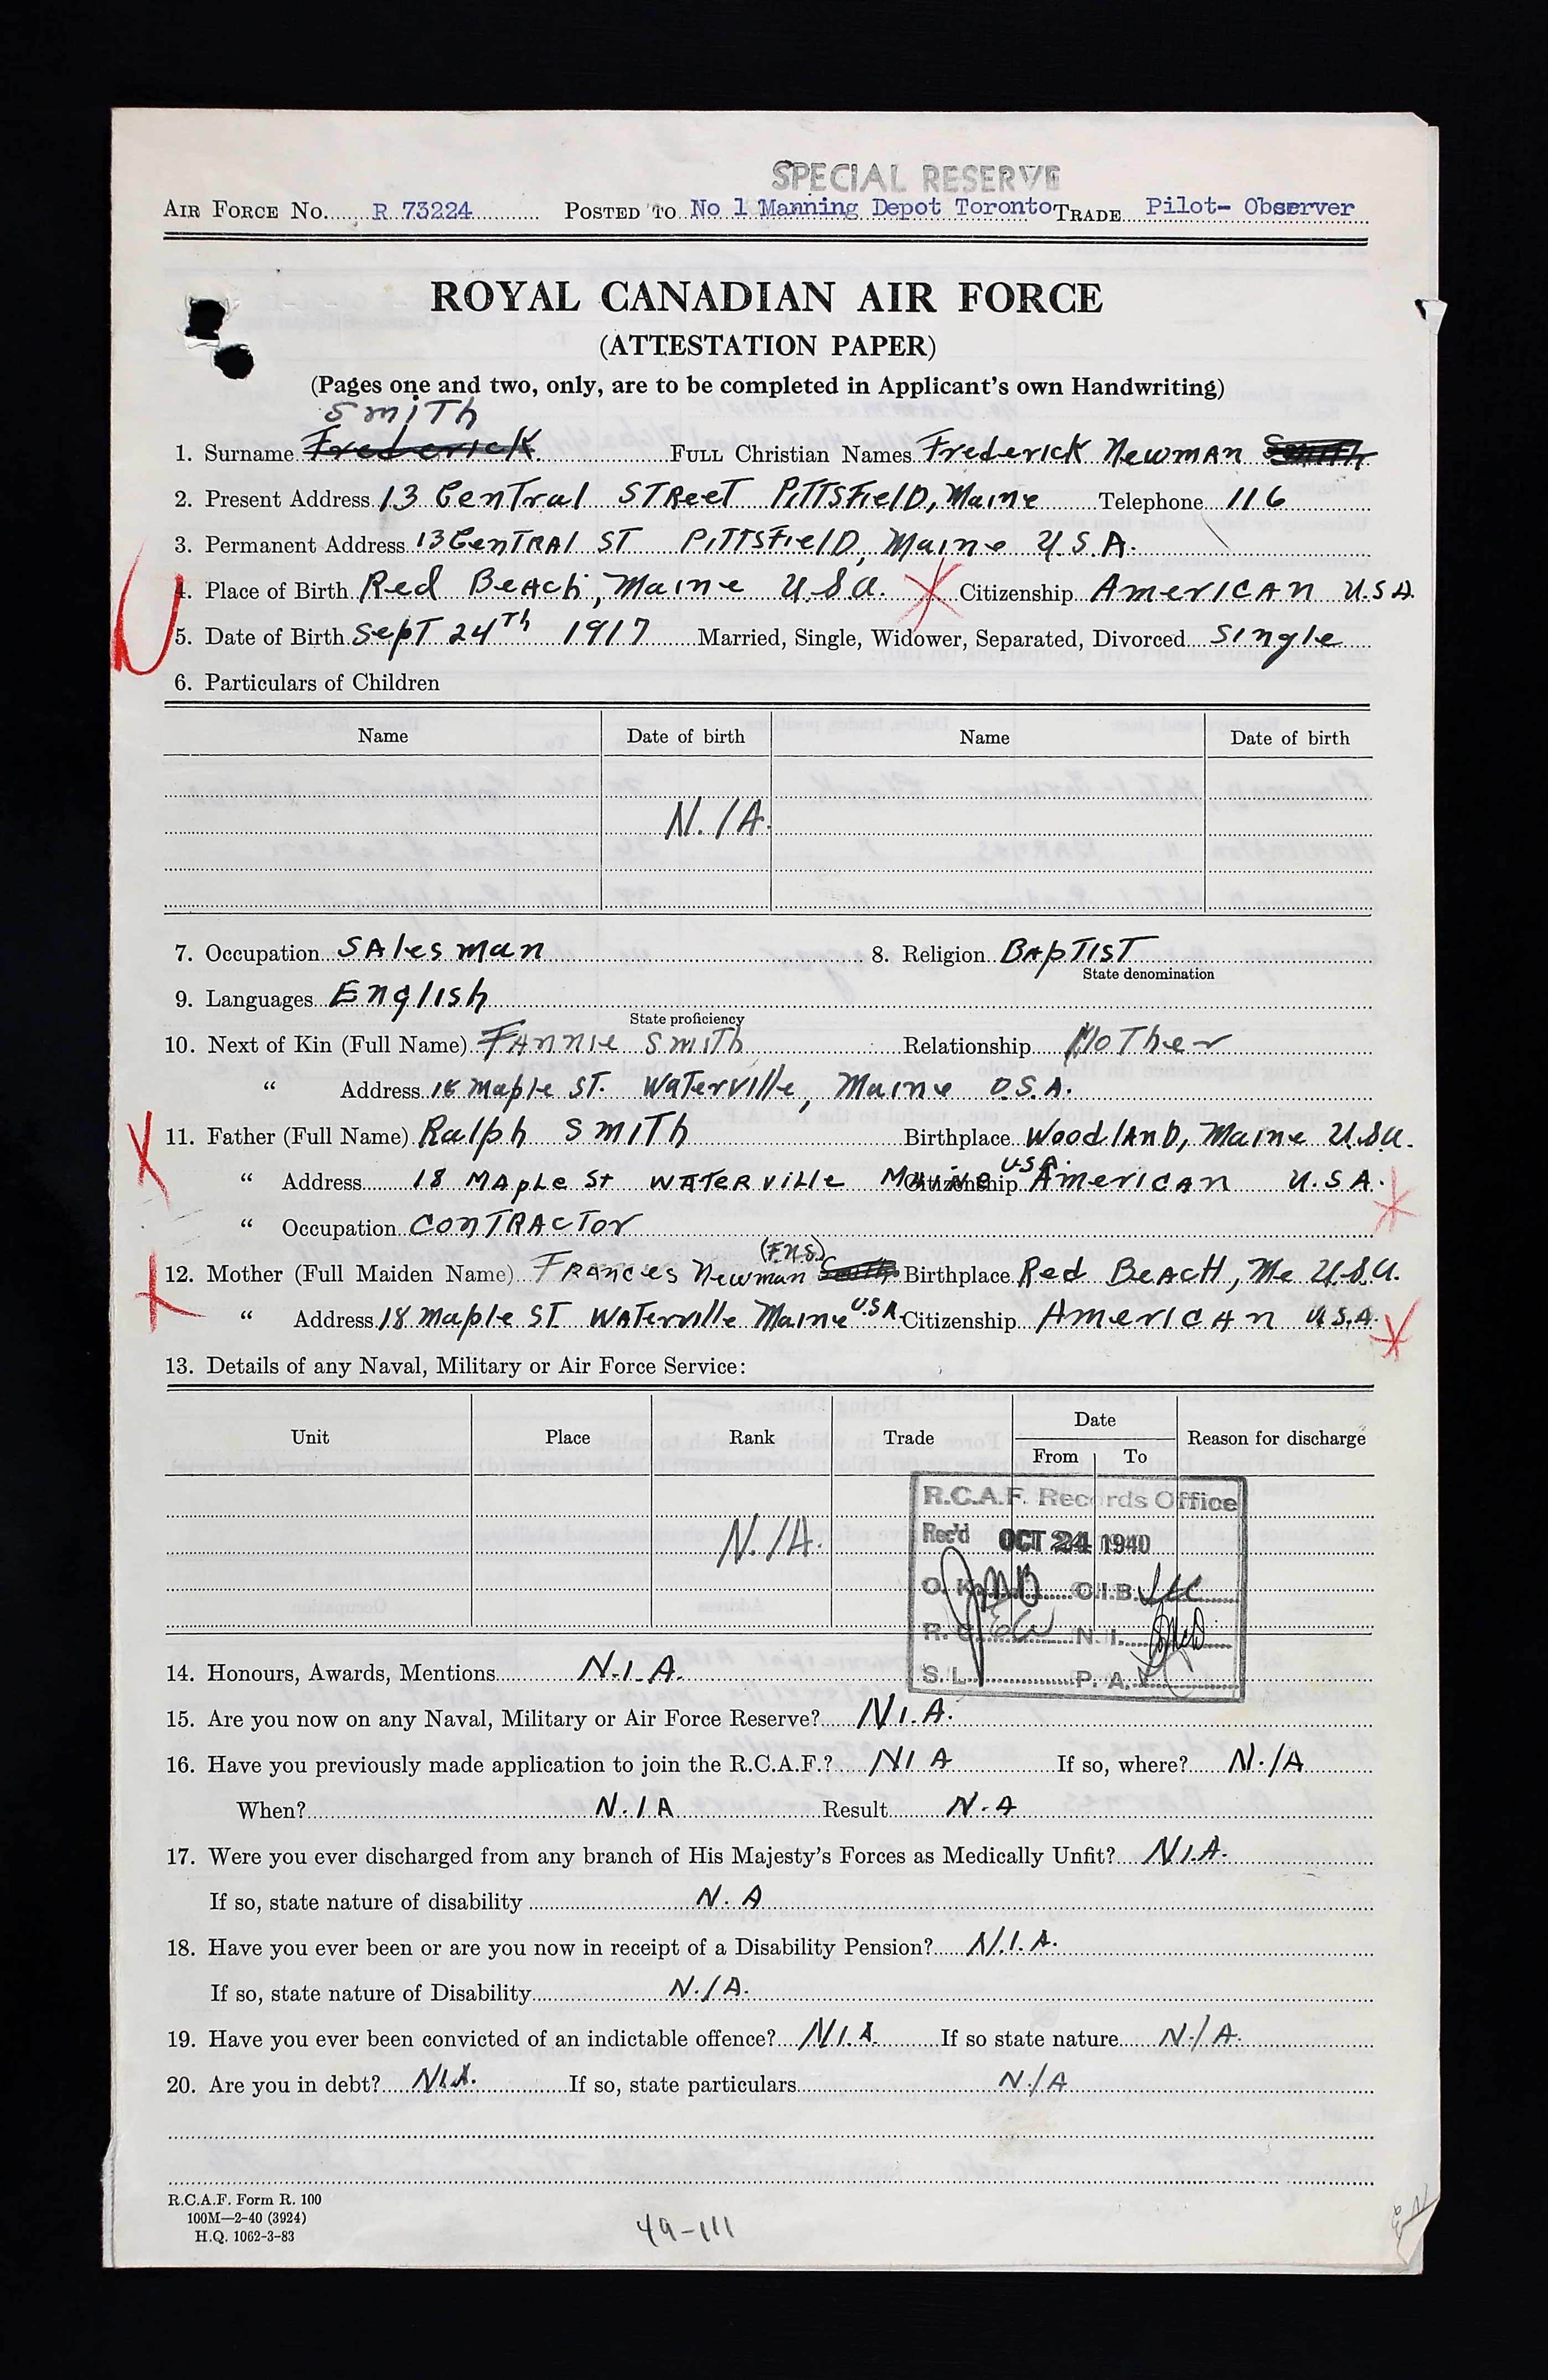 SPECIAL RESERVE
AIR FORCE NO. R 73224 POSTED TO No 1 Manning Depot Toronto TRADE Pilot- Observer
ROYAL CANADIAN AIR FORCE
(ATTESTATION PAPER)
(Pages one and two, only, are to be completed in Applicant's own Handwriting)
Smith
1. Surname Frederick FULL Christian Names Frederick Newman Smith
2. Present Address 13 Central Street Pittsfield, Maine Telephone 116
3. Permanent Address 13 Central St Pittsfield, Maine U.S.A.
4. Place of Birth Red Beach, Maine U.S.A. Citizenship American U.S.A.
5. Date of Birth Sept 24th 1917 Married, Single, Widower, Separated, Divorced Single
6. Particulars of Children
Name Date of birth Name Date of birth
N./A.
7. Occupation Salesman 8. Religion Baptist
State denomination
9. Languages English
State proficiency
10. Next of Kin (Full Name) Fannie Smith Relationship Mother
" Address 18 Maple St. Waterville, Maine U.S.A.
11. Father (Full Name) Ralph Smith Birthplace Woodland, Maine U.S.A.
" Address 18 Maple St Waterville Maine U.S.A. Citizenship American U.S.A.
" Occupation Contractor
(F.N.S.)
12. Mother (Full Maiden Name) Frances Newman Smith Birthplace Red Beach, Me U.S.A.
" Address 18 Maple St. Waterville Maine U.S.A. Citizenship American U.S.A.
13. Details of any Naval, Military or Air Force Service:
Unit Place Rank Trade Date Reason for discharge
From To
N./A.
R.C.A.F. Records Office
Rec'd OCT 24 1940
O.K. C.I.B.
R.C. N.I.
S.L. P.A.
14. Honours, Awards, Mentions N./A.
15. Are you now on any Naval, Military or Air Force Reserve? N/.A.
16. Have you previously made application to join the R.C.A.F.? N/A If so, where? N./A
When? N./A Result N.A
17. Were you ever discharged from any branch of His Majesty's Forces as Medically Unfit? N/.A.
If so, state nature of disability N.A
18. Have you ever been or are you now in receipt of a Disability Pension? N./.A.
If so, state nature of Disability N./A.
19. Have you ever been convicted of an indictable offence? N/.A. If so state nature N./A.
20. Are you in debt? N/.A. If so, state particulars N./A
R.C.A.F. Form R. 100
100M—2-40 (3924)
H.Q. 1062-3-83
49-111